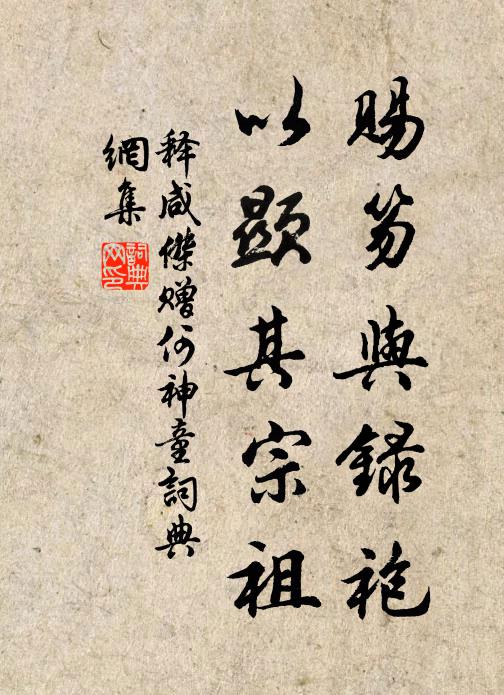 賜笏與録袍
以顯其宗祖
释咸傑赠何神童詞典
網集
詞典
网印